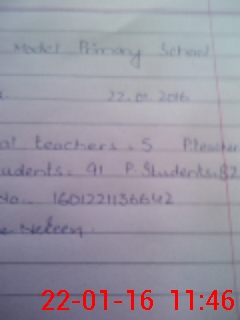 Model Primary School
22.01.2016
al teachers. 5 P.teacher
udents. 91 P. Students. 82
No.. 1601221136642
e. Neteen.
22-01-16 11:46